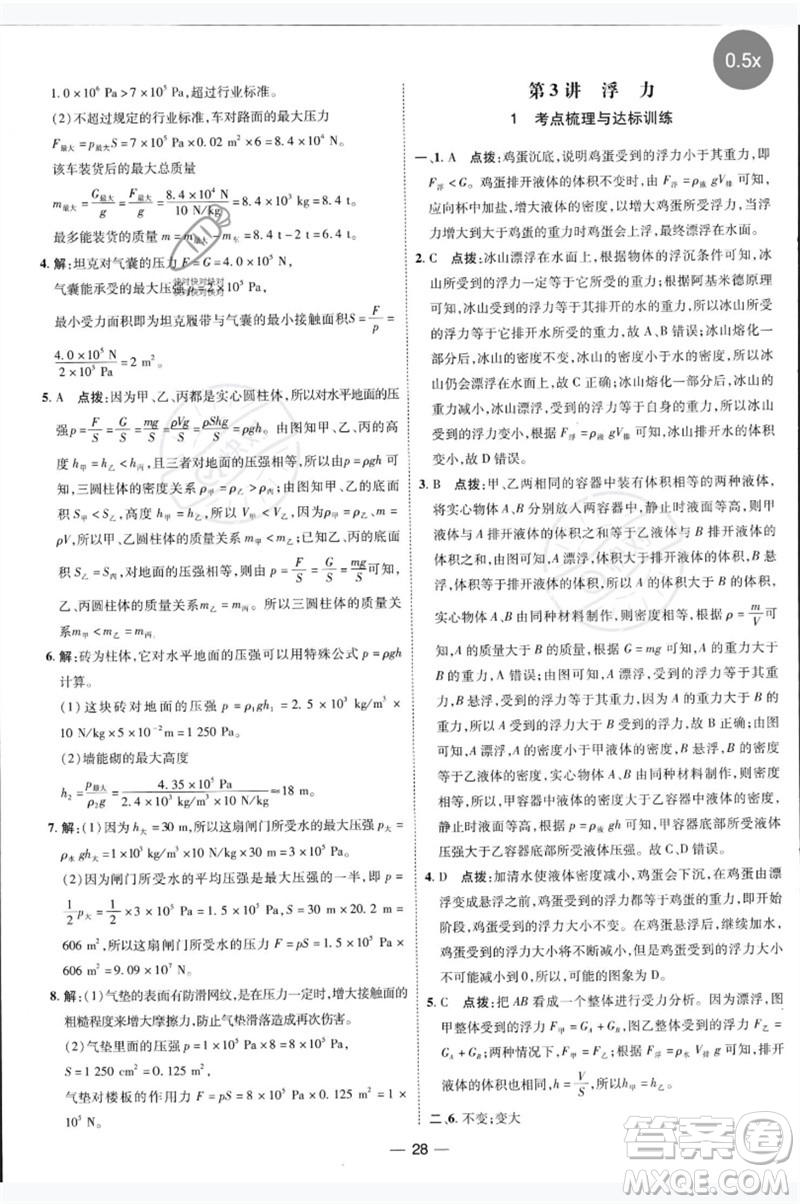 0.5x
1.0×10⁶ Pa＞7×10⁵ Pa，超过行业标准。
(2)不超过规定的行业标准，车对路面的最大压力
F最大＝p最大S＝7×10⁵ Pa×0.02 m²×6＝8.4×10⁴ N。
该车装货后的最大总质量
m最大＝G最大/g＝F最大/g＝8.4×10⁴ N/10 N/kg＝8.4×10³ kg＝8.4 t。
最多能装货的质量 m＝m最大－m车
4. 解：坦克对气囊的压力 F＝G＝4.0×10⁵ N，
气囊能承受的最大压强 p＝2×10⁵ Pa，
最小受力面积即为坦克履带与气囊的最小接触面积S＝F/p＝
4.0×10⁵ N/2×10⁵ Pa＝2 m²。
5. A 点拨：因为甲、乙、丙都是实心圆柱体，所以对水平地面的压
强p＝F/S＝G/S＝mg/S＝ρVg/S＝ρShg/S＝ρgh。由图知甲、乙、丙的高
度 h甲＜h乙＝h丙，且三者对地面的压强相等，所以由 p＝ρgh 可
知，三圆柱体的密度关系 ρ甲＞ρ乙＝ρ丙。由图可知底面积
S甲＜S乙，高度 h甲＜h乙，所以体积 V甲＜V乙，又因为 m＝
ρV，所以甲、乙圆柱体的质量 m甲＜m乙；由图知底面积
S乙＜S丙，对地面的压强相等，所以由 p＝F/S＝G/S＝mg/S可知，
乙、丙圆柱体的质量关系m乙＜m丙。所以三圆柱体的质量
关系m甲＜m乙＜m丙。
6. 解：砖为柱体，它对水平地面的压强可以用特殊公式 p＝ρgh
计算。
(1)这块砖对地面的压强 p＝ρ₁gh₁＝2.5×10³ kg/m³×
10 N/kg×5×10⁻² m＝1 250 Pa。
(2)墙能砌的最大高度
h₂＝p最大/ρ₂g＝4.35×10⁵ Pa/2.4×10³ kg/m³×10 N/kg≈18 m。
7. 解：(1)因为 h大＝30 m，所以这扇闸门所受水的最大压强 p大＝
ρ水gh大＝1×10³ kg/m³×10 N/kg×30 m＝3×10⁵ Pa。
(2)因为闸门所受水的平均压强等于最大压强的一半，即 p＝
1/2 p大＝1/2×3×10⁵ Pa＝1.5×10⁵ Pa，S＝30 m×20.2 m＝
606 m²，所以这扇闸门所受水的压力 F＝pS＝1.5×10⁵ Pa×
606 m²＝9.09×10⁷ N。
8. 解：(1)气垫的表面有防滑网纹，是在压力一定时，增大接触面的
粗糙程度来增大摩擦力，防止气垫滑落造成再次伤害。
(2)气垫里面的压强 p＝8×10⁵ Pa，气垫与楼板的接触面积 S＝
1 250 cm²＝0.125 m²，
气垫对楼板的作用力 F＝pS＝8×10⁵ Pa×0.125 m²＝
1×10⁵ N。
第3讲 浮 力
1 考点梳理与达标训练
一、1. A 点拨：鸡蛋沉底，说明鸡蛋受到的浮力小于其重力，即
F浮＜G。鸡蛋排开液体的体积不变时，由 F浮＝ρ液gV排可知，
应向杯中加盐，增大液体的密度，以增大鸡蛋所受浮力，当浮力
大于重力时，鸡蛋上浮，最终漂浮在水面上。
2. C 点拨：冰山漂浮在水面上，根据物体的浮沉条件可知，冰山
所受的浮力一定等于它受到的重力；根据阿基米德原理
可知，冰山所受的浮力等于其排开的水的重力，所以冰山所
受的浮力等于它排开水所受的重力，故 A、B 错误。冰山熔化一
小部分后，冰山的密度不变，冰山的密度小于水的密度，所以冰
山仍会漂浮于水面上，故 C 正确。冰山熔化一小部分后，冰山的
重力减小，冰山漂浮，受到的浮力等于自身的重力，所以冰山受
到的浮力变小；根据 F浮＝ρ液gV排可知，冰山排开水的体积
变小，故 D 错误。
3. B 点拨：甲、乙两个相同的容器中装有体积相等的两种液体，
将实心物体 A、B 分别放入两容器中，静止时液面相平，所以甲
液体与 A 排开液体的体积之和等于乙液体与 B 排开液体的
体积之和，由图知，A 漂浮，A 实际体积大于排开液体的体积，B
悬浮，B 实际体积等于排开液体的体积，所以 A 体积大于 B 体积，
实心物体 A、B 由同种材料制作，密度相同，根据 ρ＝m/V可知，A
的质量大于 B 的质量，根据 G＝mg 可知，A 的重力大于 B
的重力，A 错误；由图可知，A 漂浮，受到的浮力等于 A 的重力，
B 悬浮，受到的浮力等于 B 的重力，A 的重力大于 B 的重力，
所以 A 受到的浮力大于 B 受到的浮力，B 正确；由图可知，A
漂浮，A 的密度小于甲液体的密度，B 悬浮，B 的密度等于乙液
体的密度，实心物体 A、B 由同种材料制作，密度相同，
所以，甲容器中液体密度大于乙容器中液体密度，
静止时液面相平，根据 p＝ρ液gh 可知，甲容器底部受到的液体
压强大于乙容器底部受到的液体压强。故 C、D 错误。
4. D 点拨：加清水使液体密度减小，鸡蛋会下沉，在鸡蛋由漂
浮变成悬浮时，鸡蛋受到的浮力都等于鸡蛋的重力，即开始
阶段，鸡蛋受到的浮力大小不变。鸡蛋悬浮后，继续加水，液体
密度继续减小，鸡蛋受到的浮力大小将不断减小，但鸡蛋受到
的浮力大小不能达到 0，所以可能的图象为 D。
5. C 点拨：把 AB 看成一个整体进行受力分析。因为漂浮，图
甲整体受到的浮力 F甲＝GA＋GB，图乙整体受到的浮力 F乙＝
GA＋GB；两种情况下，F甲＝F乙，根据 F浮＝ρ水V排g 可得，排
开液体的体积相等，h＝V/S，所以h甲＝h乙。
二、6. 不变；变大
快对快对快对
快对快对快对
28
答案圈
MXQE.COM